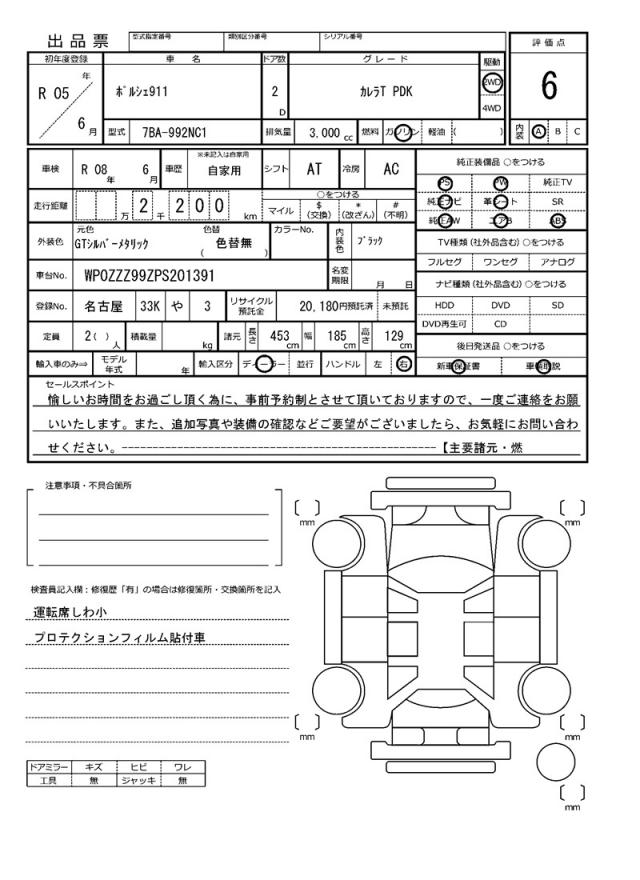 出品票 型式指定番号 類別区分番号 シリアル番号 評価点
初年度登録 車名 ドア数 グレード 駆動
R 05 年 6月 ポルシェ911 2 D カレラT PDK 2WD 4WD 6
型式 7BA-992NC1 排気量 3,000 cc 燃料 ガソリン 軽油 ( ) 内装 A B C
車検 R 08 年 6 月 車歴 ※未記入は自家用 自家用 シフト AT 冷房 AC 純正装備品 ○をつける
PS PW 純正TV
走行距離 万 2 千 2 0 0 km ○をつける マイル $ (交換) * (改ざん) # (不明) 純正ナビ 革シート SR
純正AW エアB ABS
外装色 元色 GTシルバーメタリック 色替 ( 色替無 ) カラーNo. 内装色 ブラック TV種類 (社外品含む) ○をつける
フルセグ ワンセグ アナログ
車台No. WP0ZZZ99ZPS201391 名変期限 月 日 ナビ種類 (社外品含む) ○をつける
登録No. 名古屋 33K や 3 リサイクル預託金 20,180円預託済 未預託 HDD DVD SD
DVD再生可 CD
定員 2( )人 積載量 kg 諸元 長さ 453cm 幅 185cm 高さ 129cm 後日発送品 ○をつける
輸入車のみ⇒ モデル年式 年 輸入区分 ディーラー 並行 ハンドル 左 右 新車保証書 車輌取説
セールスポイント
愉しいお時間をお過ごし頂く為に、事前予約制とさせて頂いておりますので、一度ご連絡をお願
いいたします。また、追加写真や装備の確認などご要望がございましたら、お気軽にお問い合わ
せください。------------------------------------------------【主要諸元・燃
注意事項・不具合箇所
mm mm
検査員記入欄：修復歴「有」の場合は修復箇所・交換箇所を記入
運転席しわ小
プロテクションフィルム貼付車
mm mm
ドアミラー キズ ヒビ ワレ
工具 無 ジャッキ 無
mm